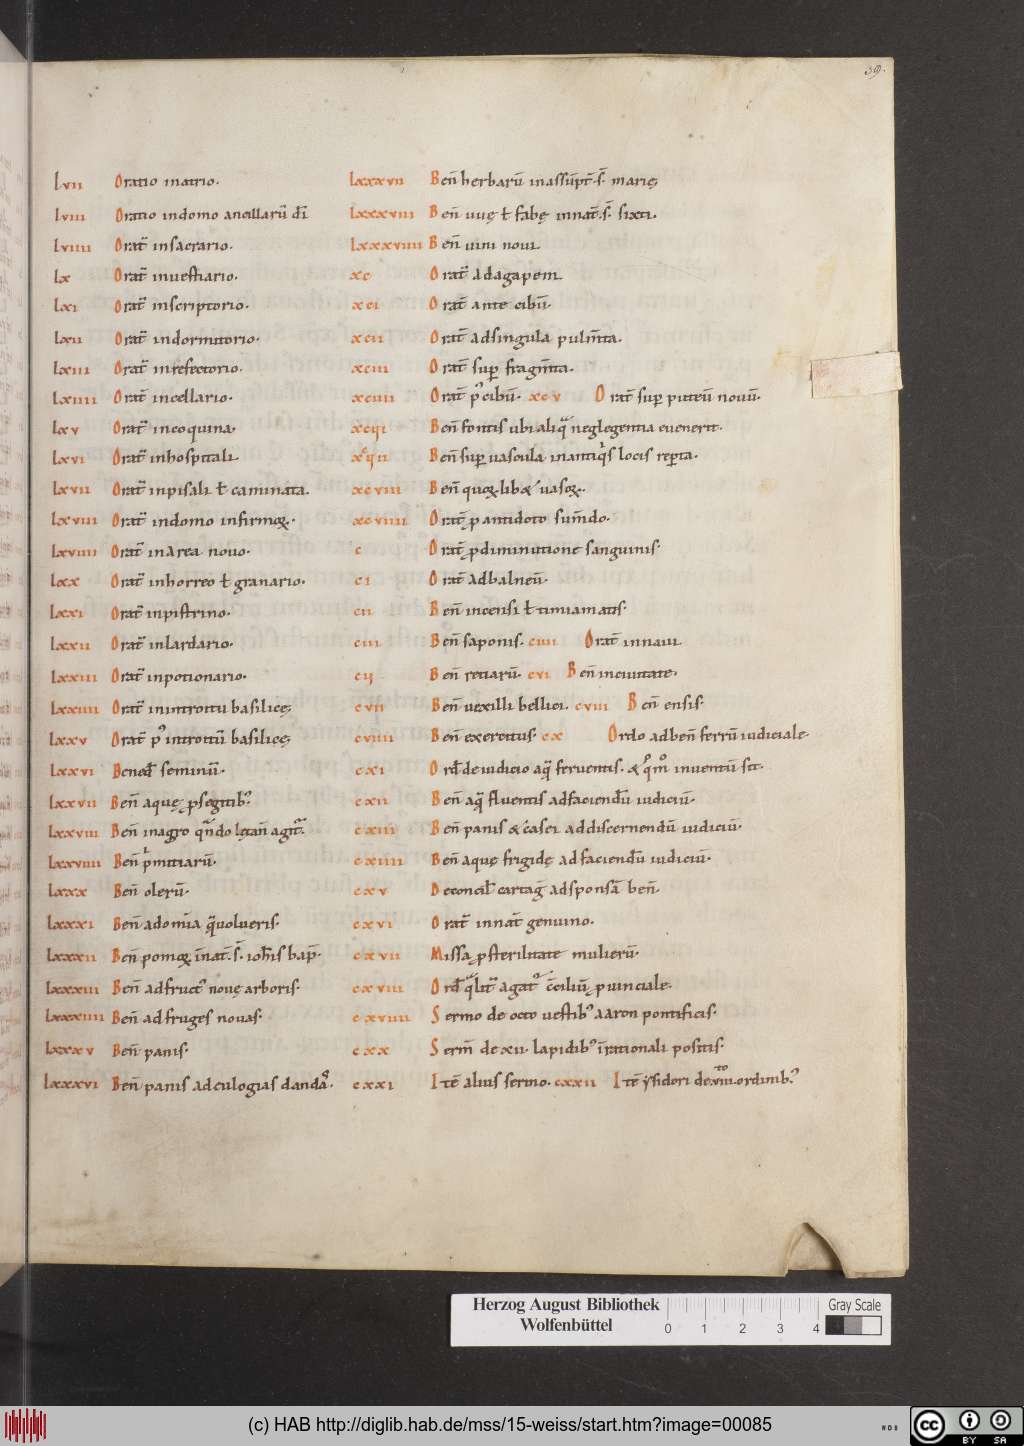 39.
lvii Oratio inatrio.
lviii Oratio indomo ancillarū dī
lviiii Orat̄ insacrario.
lx Orat̄ inuestiario.
lxi Orat̄ inscriptorio.
lxii Orat̄ indormitorio.
lxiii Orat̄ inrefectorio.
lxiiii Orat̄ incellario.
lxv Orat̄ incoquina.
lxvi Orat̄ inhospitali
lxvii Orat̄ inpisali ł caminata.
lxviii Orat̄ indomo infirmoꝝ.
lxviiii Orat̄ inarea nouo.
lxx Orat̄ inhorreo ł granario.
lxxi Orat̄ inpistrino.
lxxii Orat̄ inlardario.
lxxiii Orat̄ inpotionario.
lxxiiii Orat̄ inintroitu basilicę;
lxxv Orat̄ pꝰ introitū basilicę;
lxxvi Bened̄ seminū.
lxxvii Ben̄ aquę ꝓsegitibꝰ
lxxviii Ben̄ inagro qn̄do lętan̄ agit᷑.
lxxviiii Ben̄ pͥmitiarū.
lxxx Ben̄ olerū.
lxxxi Ben̄ adomīa q̄uolueris.
lxxxii Ben̄ pomoꝝ īnat̄.s̄. ioħis bap̄.
lxxxiii Ben̄ adfructꝰ nouę arboris.
lxxxiiii Ben̄ adfruges nouas.
lxxxv Ben̄ panis.
lxxxvi Ben̄ panis adeulogias dandas.
lxxxvii Ben̄ herbarū inassūpt̄.s̄. marię;
lxxxviii Ben̄ uuę ł fabę innat̄.s̄. sixti.
lxxxviiii Ben̄ uini noui
xc Orat̄ adagapem
xci Orat̄ ante cibū.
xcii Orat̄ adsingula pulm̄ta.
xciii Orat̄ suꝑ fragm̄ta.
xciiii Orat̄ pꝰ cibū. xcv Orat̄ suꝑ puteū nouū.
xcvi Ben̄ fontis ubi aliqͣ neglegentia euenerit.
xcvii Ben̄ suꝑ uascula inantiqͥs locis reꝑta.
xcviii Ben̄ quoꝝlib& uasoꝝ.
xcviiii Orat̄ ꝓ antidoto sum̄do.
c Orat̄ ꝓdiminutione sanguinis.
ci Orat̄ adbalneū.
cii Ben̄ incensi ł timiamatis.
ciii Ben̄ saponis. ciiii Orat̄ innaui
cv Ben̄ retiarū. cvi Ben̄ inciuitate.
cvii Ben̄ uexilli bellici. cviii Ben̄ ensis.
cviiii Ben̄ exercitus. cx Ordo adben̄ ferrū iudiciale.
cxi Ord̄ de iudicio aq̄ feruentis. & pͥmͦ inuentū sit.
cxii Ben̄ aq̄ fluentis adfaciendū iudiciū.
cxiii Ben̄ panis & casei addiscernendū iudiciū.
cxiiii Ben̄ aquę frigidę adfaciendū iudiciū.
cxv Deconcil̄ cartaḡ adsponsā ben̄.
cxvi Orat̄ innat̄ genuino.
cxvii Missa ꝓsterilitate mulierū.
cxviii Ord̄ qͣlit̄ agat᷑ c̄ciliū ꝓuinciale.
cxviiii Sermo de octo uestibꝰ aaron pontificis.
cxx Serm̄ dexii. lapidibꝰ īrationali positis.
cxxi Itē alius sermo. cxxii Itē ysidori de.viii.ordinibꝰ
Herzog August Bibliothek
Wolfenbüttel
0 1 2 3 4
Gray Scale
(c) HAB http://diglib.hab.de/mss/15-weiss/start.htm?image=00085
WDB
cc BY SA